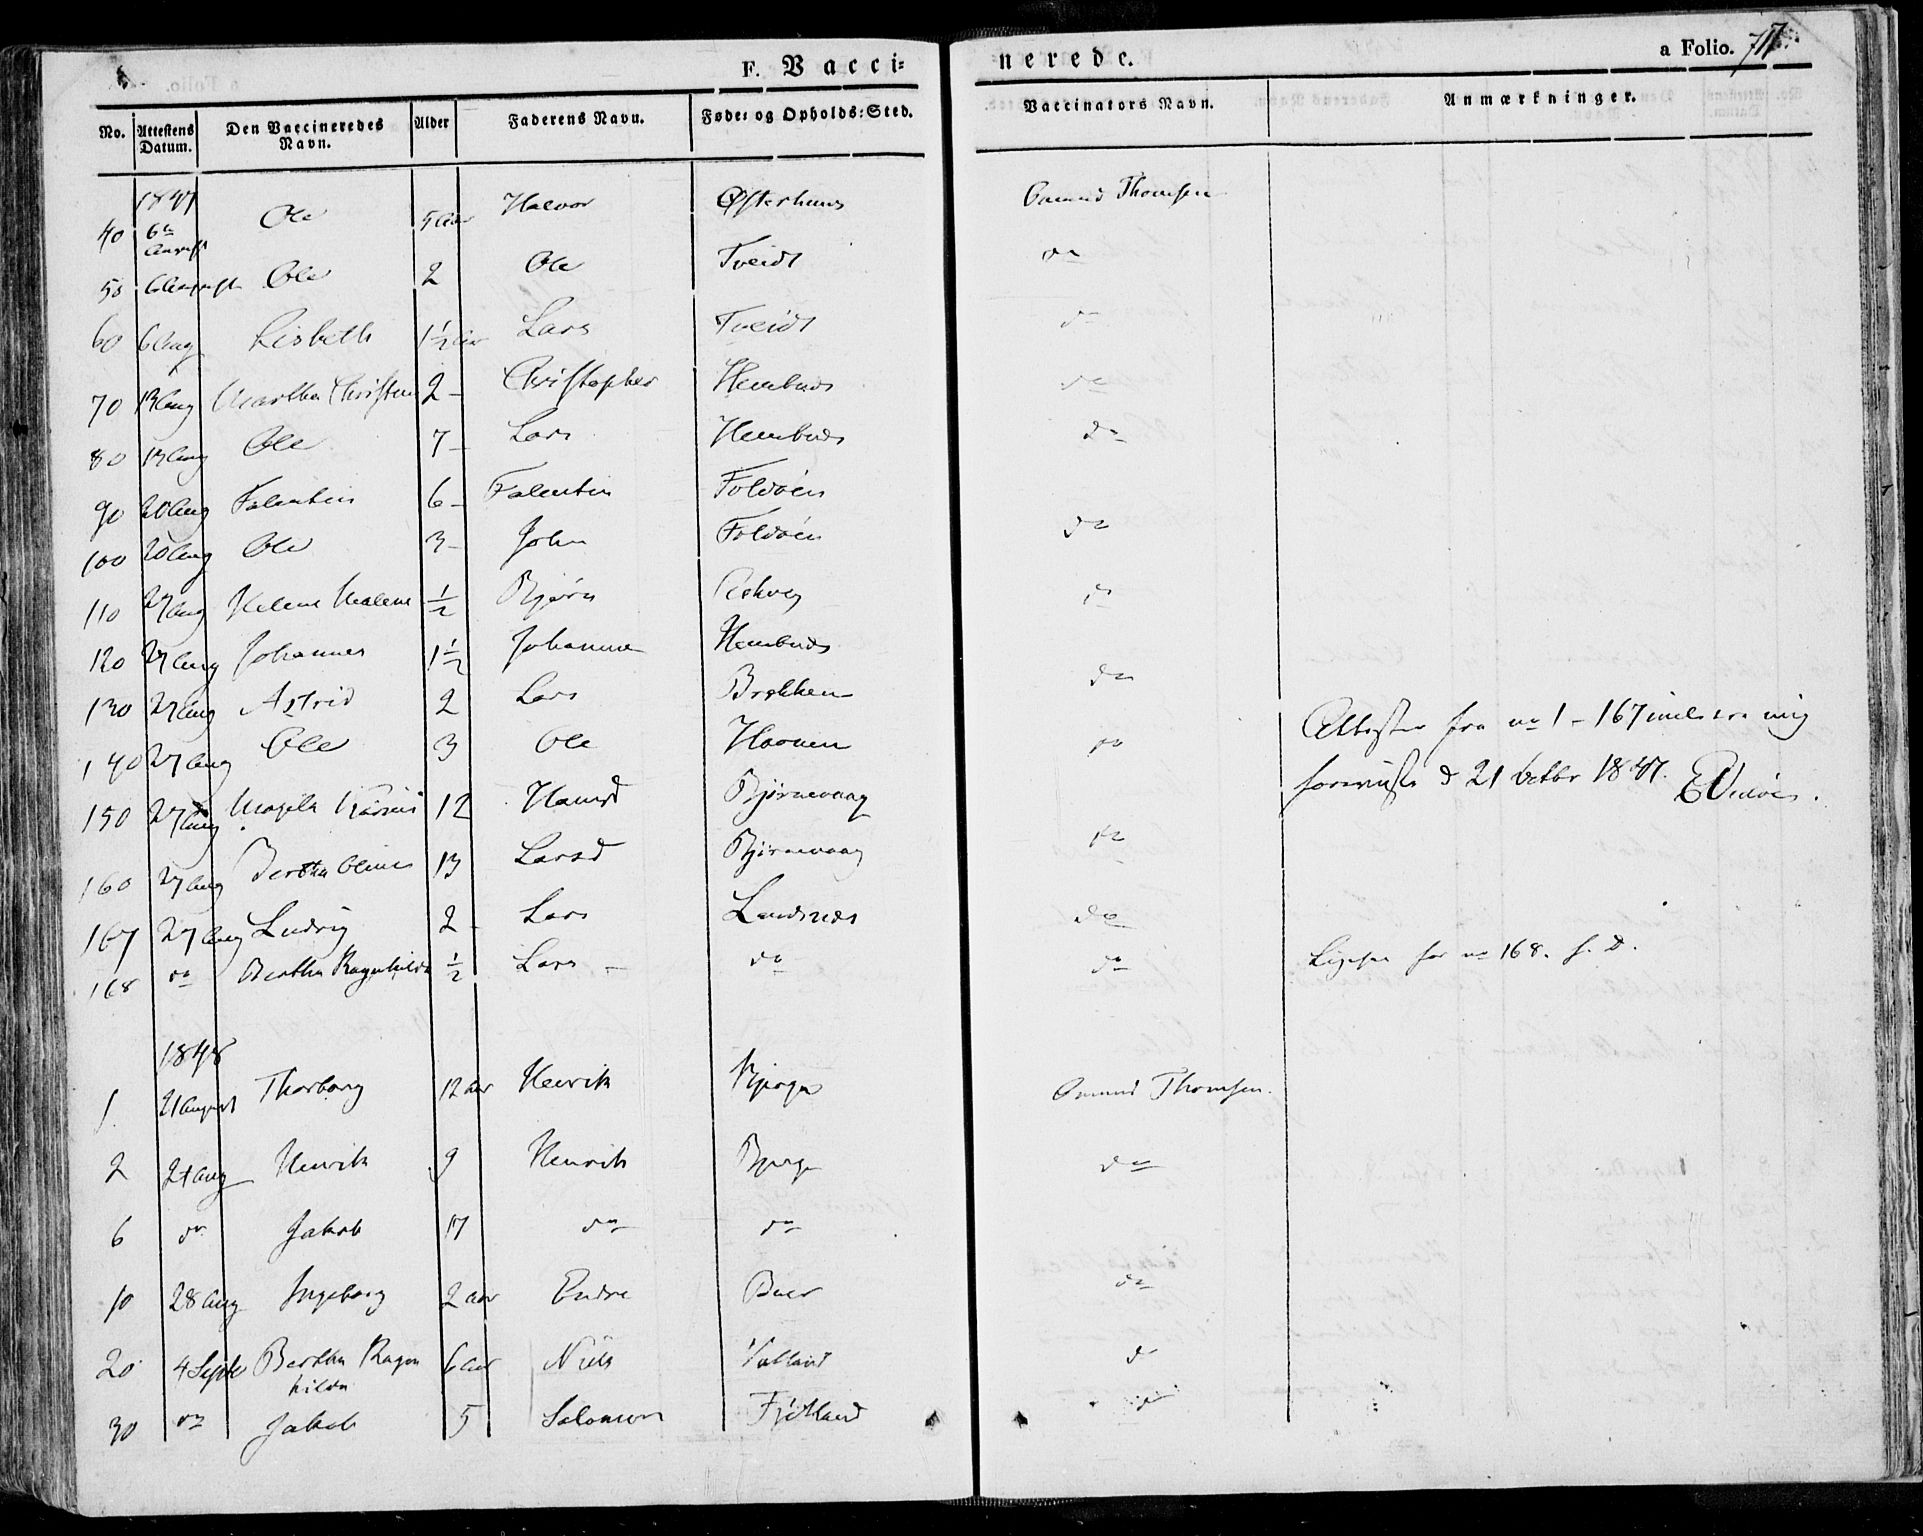 F. Vacci=
nerede.
a Folio. 717.
No. Attestens Datum. Den Vaccineredes Navn. Alder Faderens Navn. Føde= og Opholds=Sted. Vaccinators Navn. Anmærkninger.
1847
40 6te August Ole 5 Aar Halvor Østerhuus Omund Thomsen
50 6 August Ole 2 Ole Tveidt do
60 6 Aug Lisbeth 1½ Aar Lars Tveidt do
70 13 Aug Martha Christine 2 – Christopher Hembnes do
80 13 Aug Ole 7 – Lars Hembnes do
90 20 Aug Falentin 6 – Falentin Foldøen
100 20 Aug Ole 3 – John Foldøen do
110 27 Aug Helene Malene ½ Bjørn do
120 27 Aug Johannes 1½ Johannes Hembnes
130 27 Aug Astrid 2 Lars Brekken do
140 27 Aug Ole 3 Ole do
150 27 Aug 12 Hans d Bjørnevaag
160 27 Aug Bertha Oline 13 Lars d Bjørnevaag do
167 27 Aug Ludvig 2 Lars Landsnes do
168 do Bertha Ragnhilda ½ Lars – do do
Attester fra no 1 – 167 incls ere mig
foreviiste d 21 Octbr 1847.
Ligesaa for no 168. s. D.
1848
1. 21 August Thorborg 12 aar Henrik Bjerge Omund Thomsen.
2 21 Aug Henrik 9 Henrik Bjerge do
6 do Jakob 17 do do
10 28 Aug Ingeborg 2 aar Endre Buer do
20 4 Septb Bertha Ragn
hilda 6 Aar Niels Valland do
30 do Jakob 5 Salomon Fjetland do